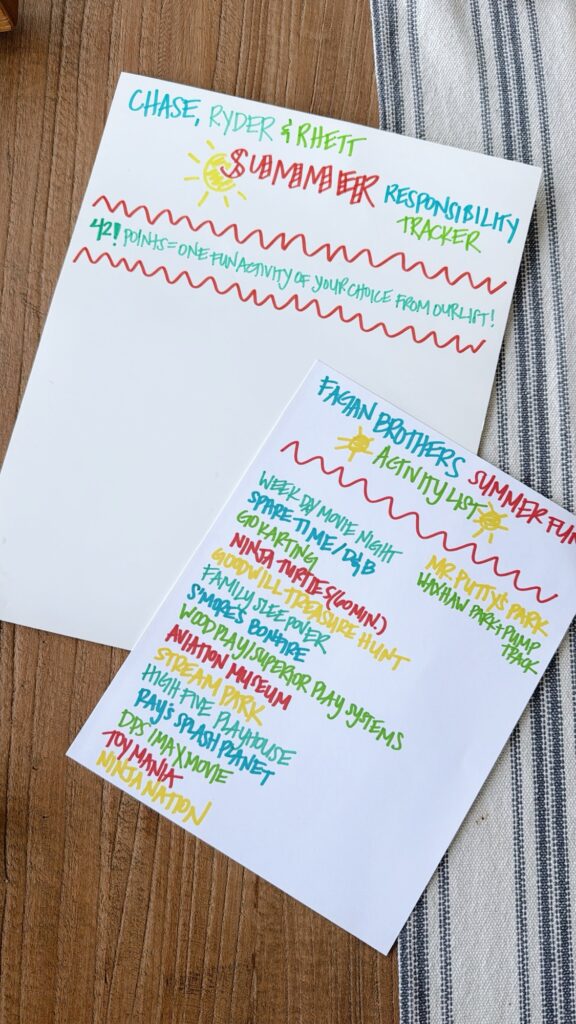 CHASE, RYDER & RHETT
SUMMER RESPONSIBILITY
TRACKER
42! POINTS = ONE FUN ACTIVITY OF YOUR CHOICE FROM OUR LIST!
FAGAN BROTHERS SUMMER FUN
ACTIVITY LIST
WEEK DAY MOVIE NIGHT
SPARE TIME / D&B
GO KARTING
NINJA TURTLES (60 MIN.)
GOODWILL TREASURE HUNT
FAMILY SLEEPOVER
S'MORE'S BONFIRE
WOODPLAY/SUPERIOR PLAY SYSTEMS
AVIATION MUSEUM
STREAM PARK
HIGH FIVE PLAYHOUSE
RAY'S SPLASH PLANET
DPS IMAX MOVIE
TOY MANIA
NINJA NATION
MR. PUTTY'S PARK
WAXHAW PARK + PUMP
TRACK